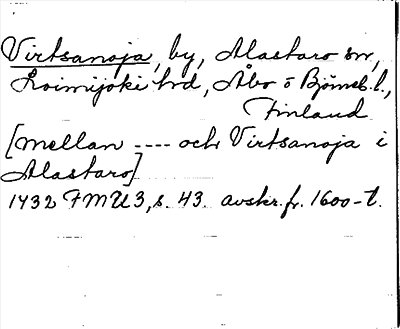 Virtsanoja, by, Alastaro sn,
Loimijoki hd, Åbo o Björneb. l.,
Finland
[mellan ---- och Virtsanoja i
Alastaro]
1432 FMU 3, s. 43. avskr. fr. 1600-t.